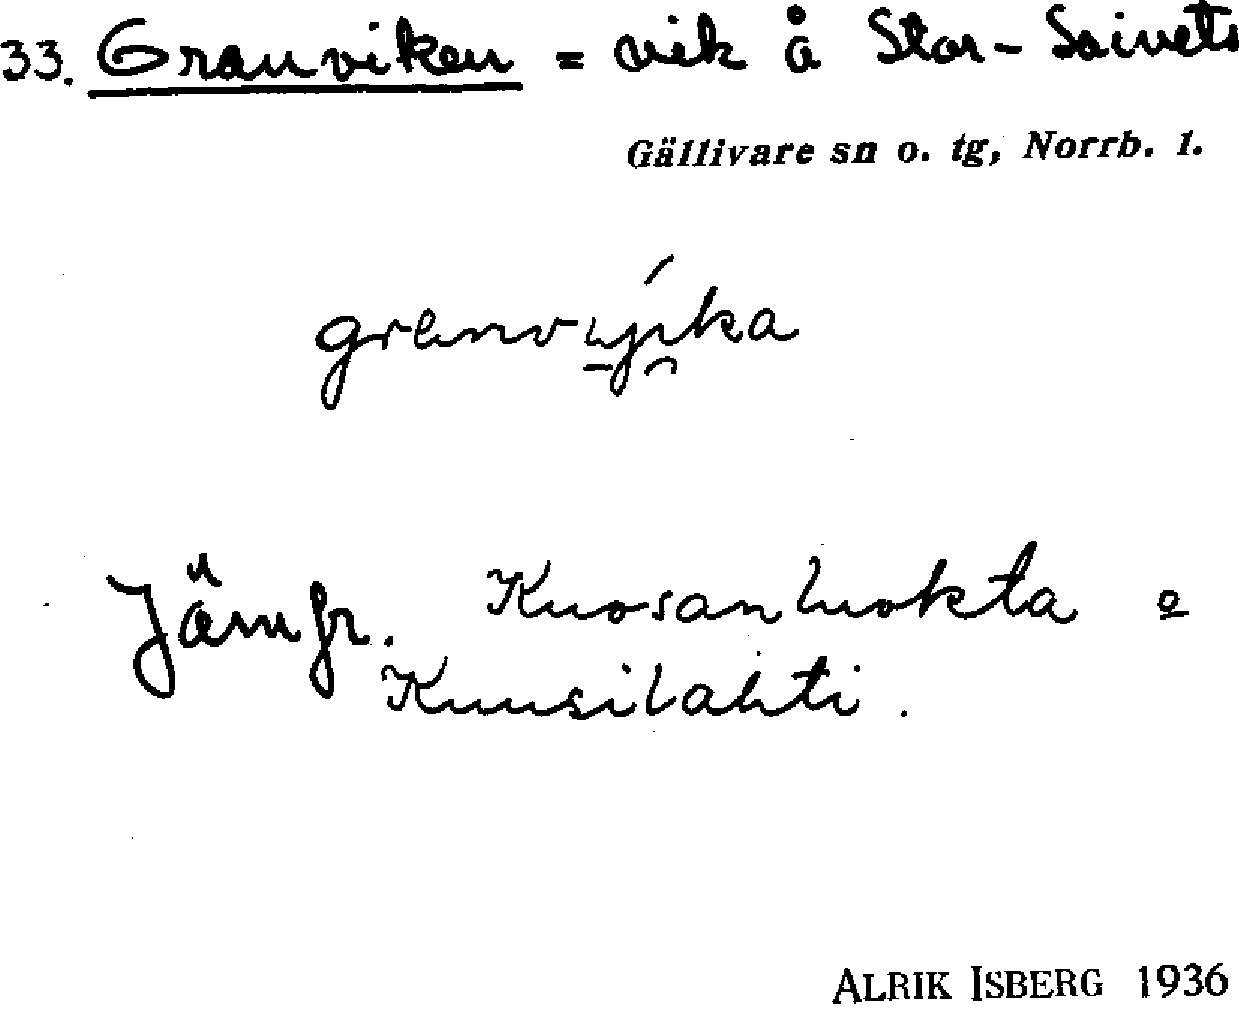 33. Granviken = vik å Stor-Saivets
Gällivare sn o. tg, Norrb. 1.
Jämfr. Kuosanluokta o
Kuusilahti.
ALRIK ISBERG 1936